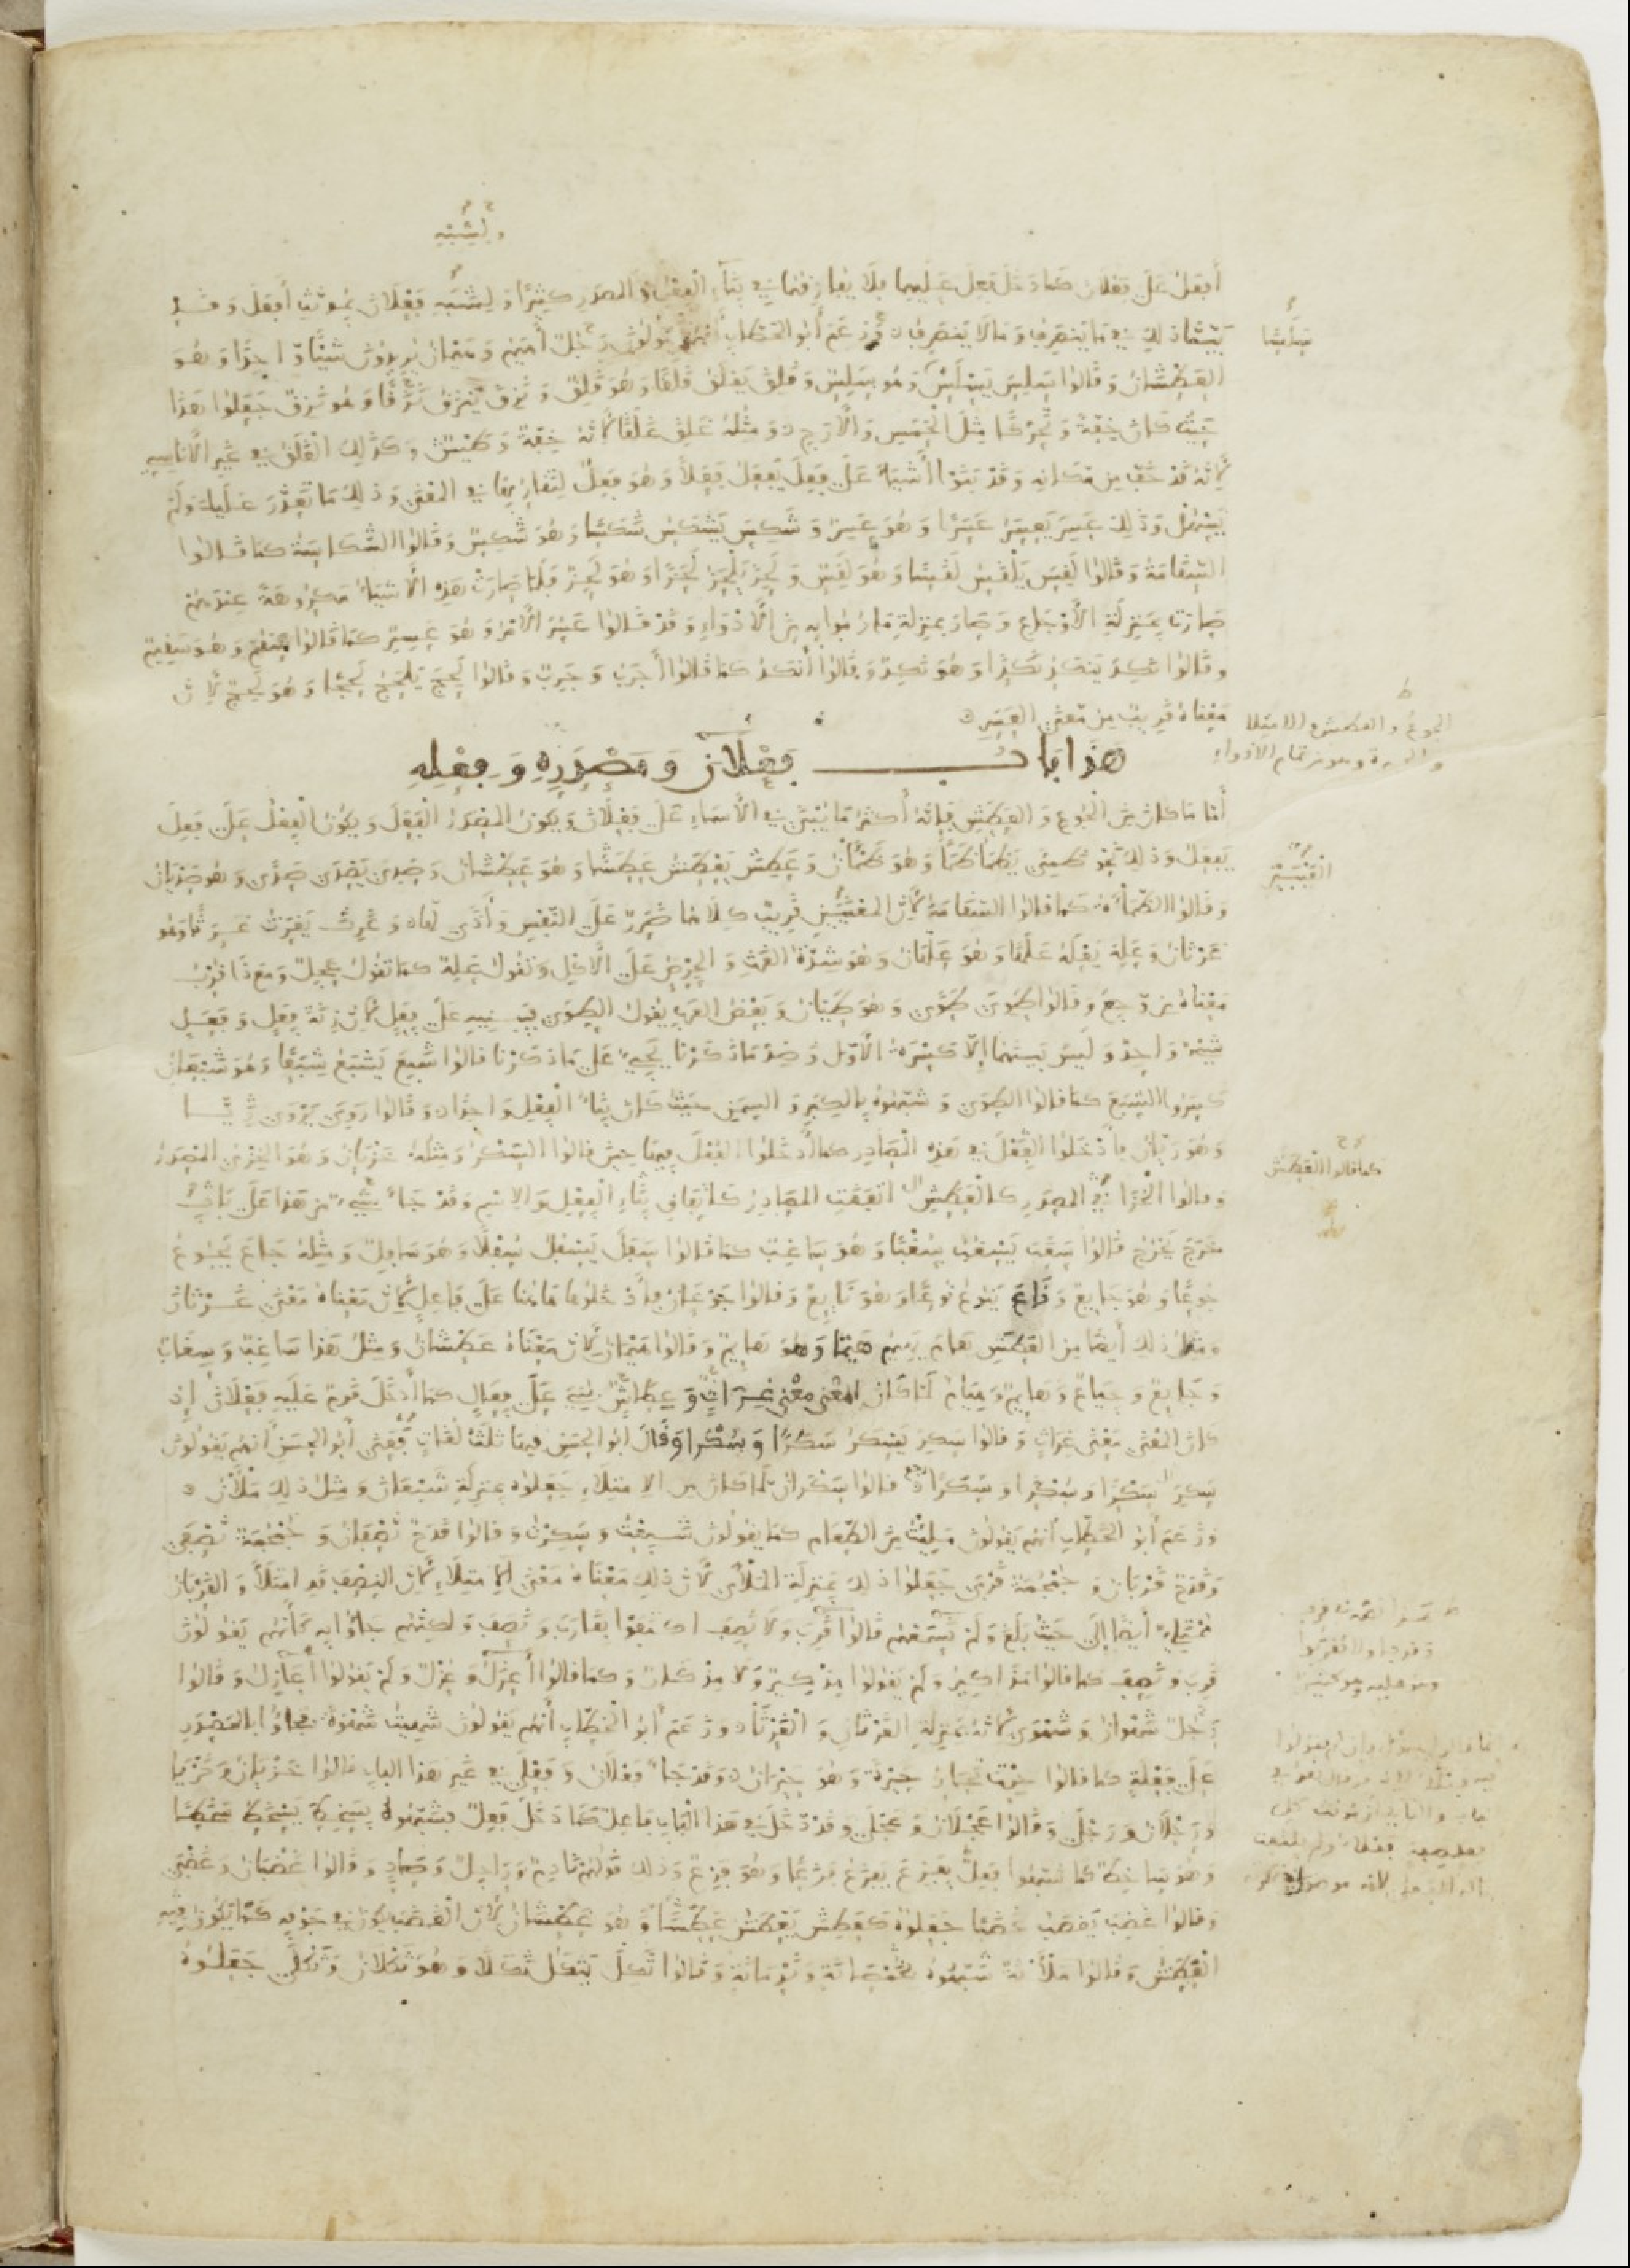 ولشبه
أفعل على فعلان كما دخل فعل عليهما فلا يفارقهما في بناء الفعل والمصدر كثيرا ولشبه فعلان بمؤنث أفعل وقد
بينا ذلك في ما ينصرف وما لا ينصرف وزعم أبو الخطاب أنهم يقولون رجل أهيم وهيمان يريدون شيئا واحدا وهو
العطشان وقالوا سلس يسلس وهو سلس وقلق يقلق قلقا وهو قلق ونزق ينزق نزقا وهو نزق جعلوا هذا
حيث كان خفة وتحركا مثل الحمس والأرج ومثله غلق غلقا لأنه خفة وطيش وكذلك الغلق في غير الأناسي
لأنه قد خف من مكانه وقد بنوا أشياء على فعل يفعل فعلا وهو فعل لتقاربها في المعنى وذلك ما تعذر عليك ولم
يسهل وذلك عسر يعسر عسرا وهو عسر وشكس يشكس شكسا وهو شكس وقالوا الشكاسة كما قالوا
السقامة وقالوا لقس يلقس لقسا وهو لقس ولحز يلحز لحزا وهو لحز فلما صارت هذه الأشياء مكروهة عندهم
صارت بمنزلة الأوجاع وصار بمنزلة ما رموا به من الأدواء وقد قالوا عسر الأمر وهو عسير كما قالوا سقم وهو سقيم
وقالوا نكد ينكد نكدا وهو نكد وقالوا أنكد كما قالوا أجرب وجرب وقالوا لحج يلحج لحجا وهو لحج لأن
معناه قريب من معنى العسر
هذا باب فعلان ومصدره وفعله
أما ما كان من الجوع والعطش فإنه أكثر ما يبنى في الأسماء على فعلان ويكون المصدر الفعل ويكون الفعل على فعل
يفعل وذلك نحو ظمئ يظمأ ظمأ وهو ظمآن وعطش يعطش عطشا وهو عطشان وصدي يصدى صدى وهو صديان
وقالوا الظماءة كما قالوا السقامة لأن المعنيين قريب كلاهما ضرر على النفس وأذى لها وغرث يغرث غرثا وهو
غرثان وعله يعله علها وهو علهان وهو شدة الغرث والحرص على الأكل وتقول عله كما تقول عجل ومع ذا قرب
معناه من وجع وقالوا طوي طوى وهو طيان وبعض العرب يقول الطوى فيبنيه على فعل لأن زنة فعل وفعل
شيء واحد وليس بينهما إلا كسرة الأول وضد ما ذكرنا يجيء على ما ذكرنا قالوا شبع يشبع شبعا وهو شبعان
كسروا الشبع كما قالوا الطوى وشبهوه بالكبر والسمن حيث كان بناء الفعل واحدا وقالوا روي يروى ريا
وهو ريان فأدخلوا الفعل في هذه المصادر كما أدخلوا الفعل فيها حين قالوا السكر ومثله خزيان وهو الخزي المصدر
وقالوا الخزا في المصدر كالعطش اتفقت المصادر كاتفاق بناء الفعل والاسم وقد جاء شيء من هذا على باب
خرج يخرج قالوا سغب يسغب سغبا وهو ساغب كما قالوا سفل يسفل سفلا وهو سافل ومثله جاع يجوع
جوعا وهو جايع وناع ينوع نوعا وهو نايع وقالوا جوعان فأدخلوها هاهنا على فاعل لأن معناه معنى غرثان
ومثل ذلك أيضا من العطش هام يهيم هيما وهو هايم وقالوا هيمان لأن معناه عطشان ومثل هذا ساغب وسغاب
وجايع وجياع وهايم وهيام لما كان المعنى معنى غراث وعطاش بني على فعال كما أدخل قوم عليه فعلان إذ
كان المعنى معنى غراث وقالوا سكر يسكر سكرا وسكرا وقال أبو الحسن فيها ثلث لغات يعني أبو الحسن أنهم يقولون
سكر سكرا وسكرا وسكرا قالوا سكران لما كان من الامتلاء جعلوه بمنزلة شبعان ومثل ذلك ملآن
وزعم أبو الخطاب أنهم يقولون ملئت من الطعام كما يقولون شبعت وسكرت وقالوا قدح نصفان وجمجمة نصفى
وقدح قربان وجمجمة قربى جعلوا ذلك بمنزلة الملآن لأن ذلك معناه معنى الامتلاء لأن النصف قد امتلأ والقربان
ممتلئ أيضا إلى حيث بلغ ولم نسمعهم قالوا قرب ولا نصف اكتفوا بقارب ونصف ولكنهم جاؤا به كأنهم يقولون
قرب ونصف كما قالوا مذاكير ولم يقولوا مذكير ولا مذكار وكما قالوا أعزل وعزل ولم يقولوا أعازل وقالوا
رجل شهوان وشهوى لأنه بمنزلة الغرثان والغرثى وزعم أبو الخطاب أنهم يقولون شهيت شهوة فجاؤا بالمصدر
على فعلة كما قالوا حرت تحار حيرة وهو حيران وقد جاء فعلان وفعلى في غير هذا الباب قالوا خزيان وخزيا
ورجلان ورجلى وقالوا عجلان وعجلى وقد دخل في هذا الباب فاعل كما دخل فعل فشبهوه بسخط يسخط سخطا
وهو ساخط كما شبهوا فعل بفزع يفزع فزعا وهو فزع وذلك قولهم نادم وراجل وصاد وقالوا غضبان وغضبى
وقالوا غضب يغضب غضبا جعلوه كعطش يعطش عطشا وهو عطشان لأن الغضب يكون في جوفه كما يكون فيه
العطش وقالوا ملآنة شبهوه بخمصانة وندمانة وقالوا ثكل يثكل ثكلا وهو ثكلان وثكلى جعلوه
سلسا
الجوع والعطش والامتلا
كما قالوا العطش